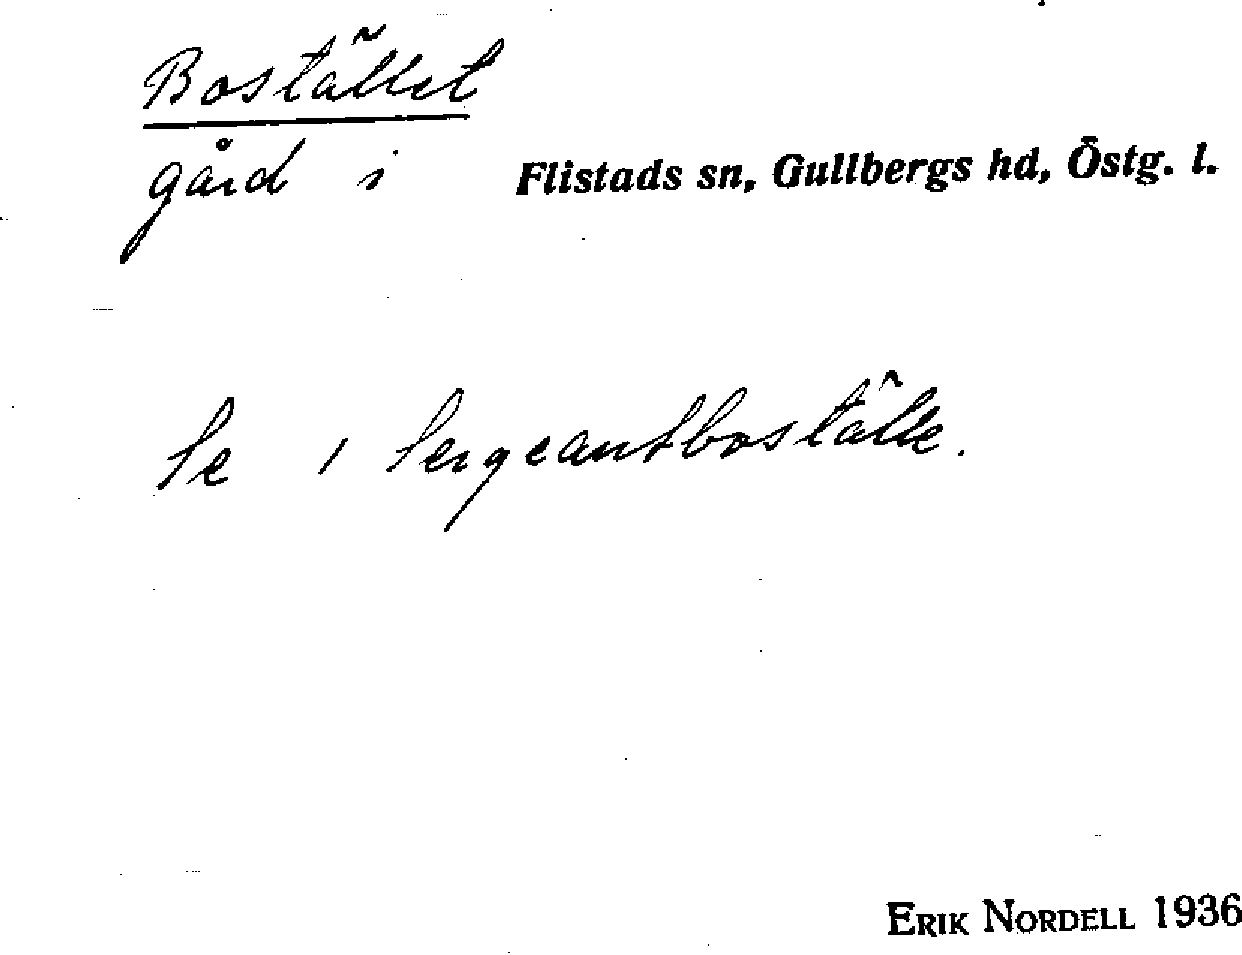 Bostället
gård i Flistads sn, Gullbergs hd, Östg. l.
Se 1 Sergeantboställe.
ERIK NORDELL 1936